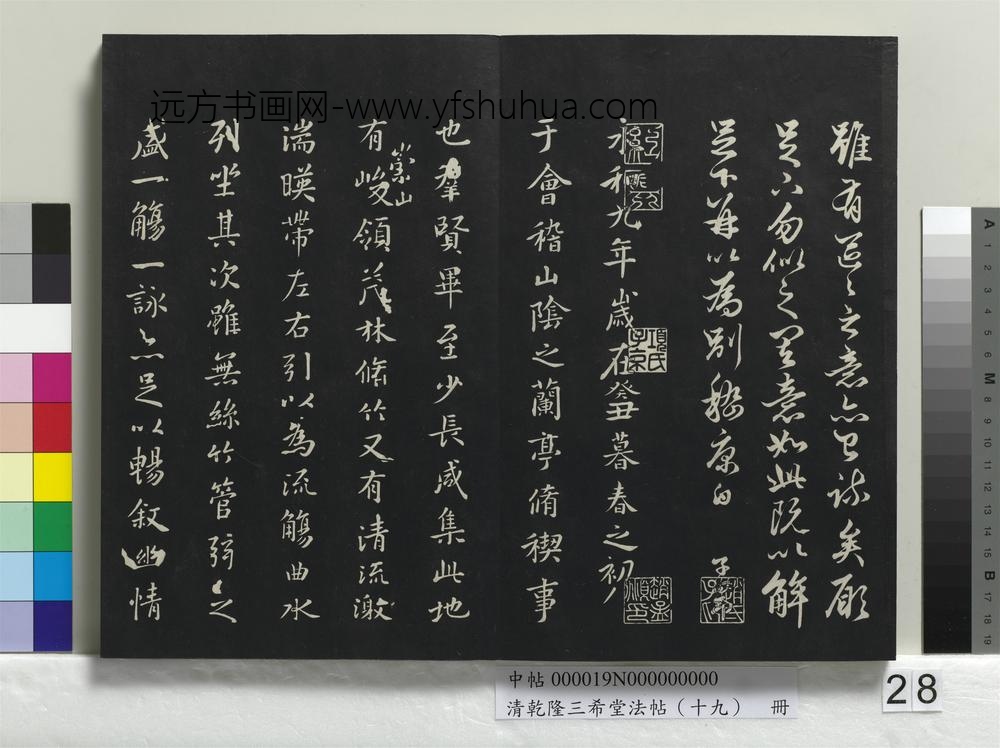 远方书画网-www.yfshuhua.com
雖有區〻之意亦已疎矣願
足下勿似之其意如此既以解
足下并以為別嵇康白 子昂
趙氏子昂
永和九年歲在癸丑暮春之初
項氏子京
趙孟頫印
于會稽山陰之蘭亭脩稧事
也羣賢畢至少長咸集此地
有崇山峻領茂林脩竹又有清流激
湍暎帶左右引以為流觴曲水
列坐其次雖無絲竹管弦之
盛一觴一詠亦足以暢敘幽情
中帖 000019N000000000
清乾隆三希堂法帖（十九） 冊
28
A 1 2 3 4 5 6 M 8 9 10 11 12 13 14 15 B 17 18 19